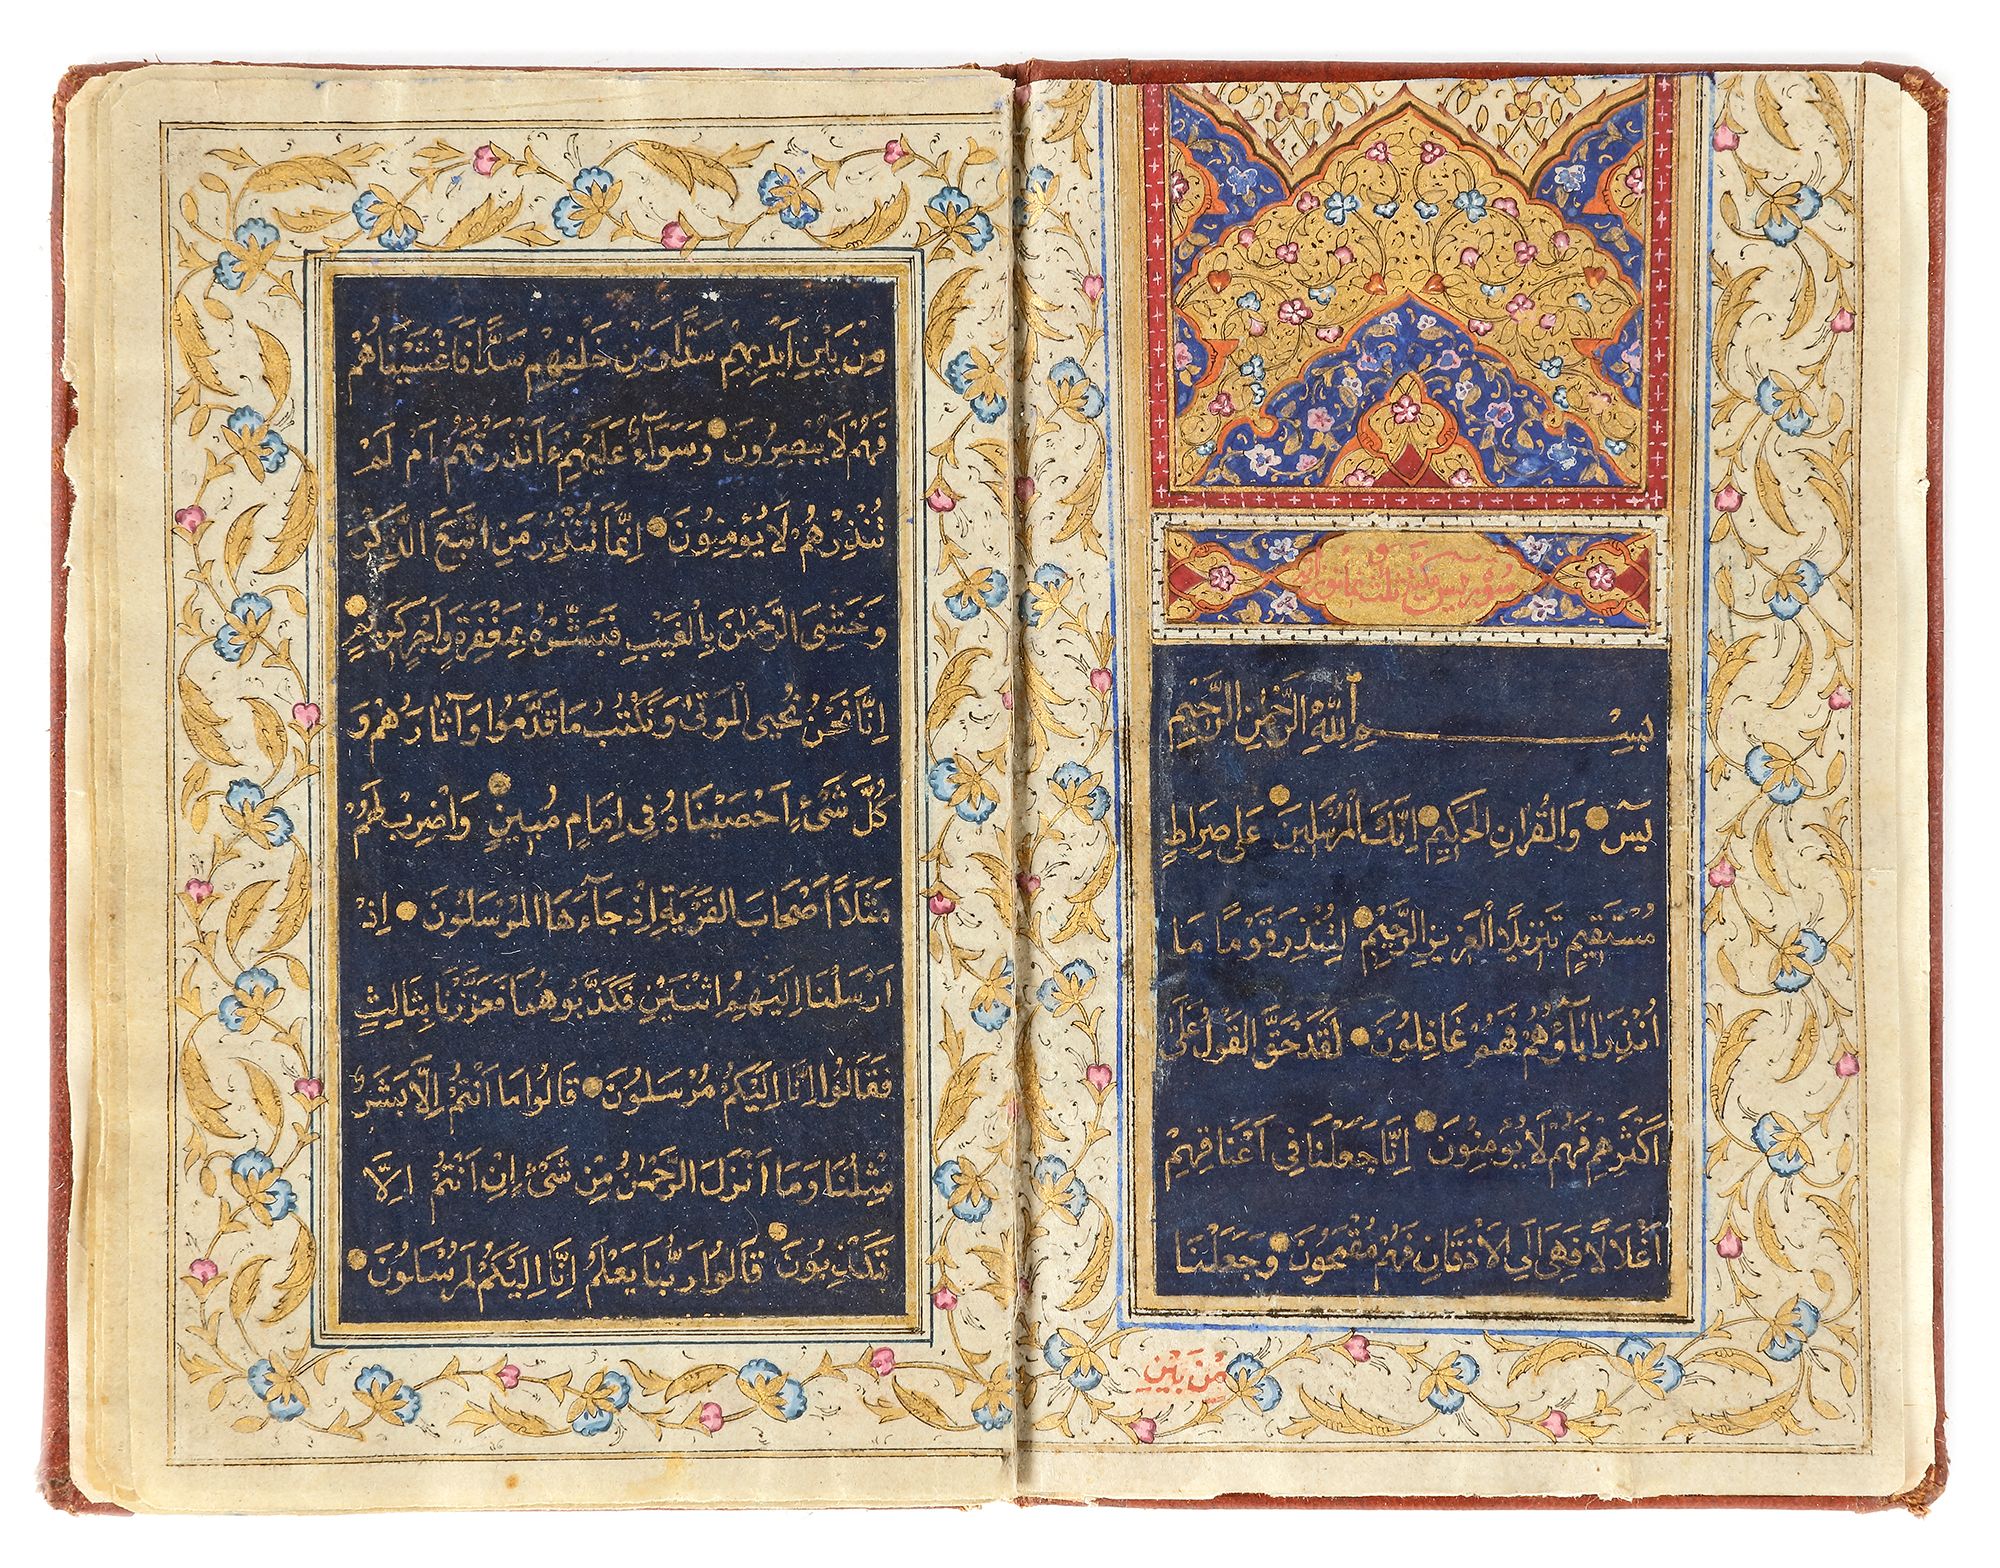 سورة يس مكية وهى ثلث وثمانون آية
بِسْمِ اللهِ الرَّحْمٰنِ الرَّحِيْمِ
يٰسٓ وَالْقُرْانِ الْحَكِيْمِ اِنَّكَ لَمِنَ الْمُرْسَلِيْنَ عَلٰى صِرَاطٍ
مُسْتَقِيْمٍ تَنْزِيْلَ الْعَزِيْزِ الرَّحِيْمِ لِتُنْذِرَ قَوْمًا مَا
اُنْذِرَ اٰبَآؤُهُمْ فَهُمْ غَافِلُوْنَ لَقَدْ حَقَّ الْقَوْلُ عَلٰى
اَكْثَرِهِمْ فَهُمْ لَا يُؤْمِنُوْنَ اِنَّا جَعَلْنَا فِى اَعْنَاقِهِمْ
اَغْلَالًا فَهِىَ اِلَى الْاَذْقَانِ فَهُمْ مُقْمَحُوْنَ وَجَعَلْنَا
مِنْ بَيْنِ
مِنْ بَيْنِ اَيْدِيْهِمْ سَدًّا وَمِنْ خَلْفِهِمْ سَدًّا فَاَغْشَيْنَاهُمْ
فَهُمْ لَا يُبْصِرُوْنَ وَسَوَآءٌ عَلَيْهِمْ ءَاَنْذَرْتَهُمْ اَمْ لَمْ
تُنْذِرْهُمْ لَا يُؤْمِنُوْنَ اِنَّمَا تُنْذِرُ مَنِ اتَّبَعَ الذِّكْرَ
وَخَشِىَ الرَّحْمٰنَ بِالْغَيْبِ فَبَشِّرْهُ بِمَغْفِرَةٍ وَاَجْرٍ كَرِيْمٍ
اِنَّا نَحْنُ نُحْيِى الْمَوْتٰى وَنَكْتُبُ مَا قَدَّمُوْا وَآثَارَهُمْ وَ
كُلَّ شَىْءٍ اَحْصَيْنَاهُ فِى اِمَامٍ مُبِيْنٍ وَاضْرِبْ لَهُمْ
مَثَلًا اَصْحَابَ الْقَرْيَةِ اِذْ جَآءَهَا الْمُرْسَلُوْنَ اِذْ
اَرْسَلْنَا اِلَيْهِمُ اثْنَيْنِ فَكَذَّبُوْهُمَا فَعَزَّزْنَا بِثَالِثٍ
فَقَالُوْا اِنَّا اِلَيْكُمْ مُرْسَلُوْنَ قَالُوْا مَا اَنْتُمْ اِلَّا بَشَرٌ
مِثْلُنَا وَمَا اَنْزَلَ الرَّحْمٰنُ مِنْ شَىْءٍ اِنْ اَنْتُمْ اِلَّا
تَكْذِبُوْنَ قَالُوْا رَبُّنَا يَعْلَمُ اِنَّا اِلَيْكُمْ لَمُرْسَلُوْنَ